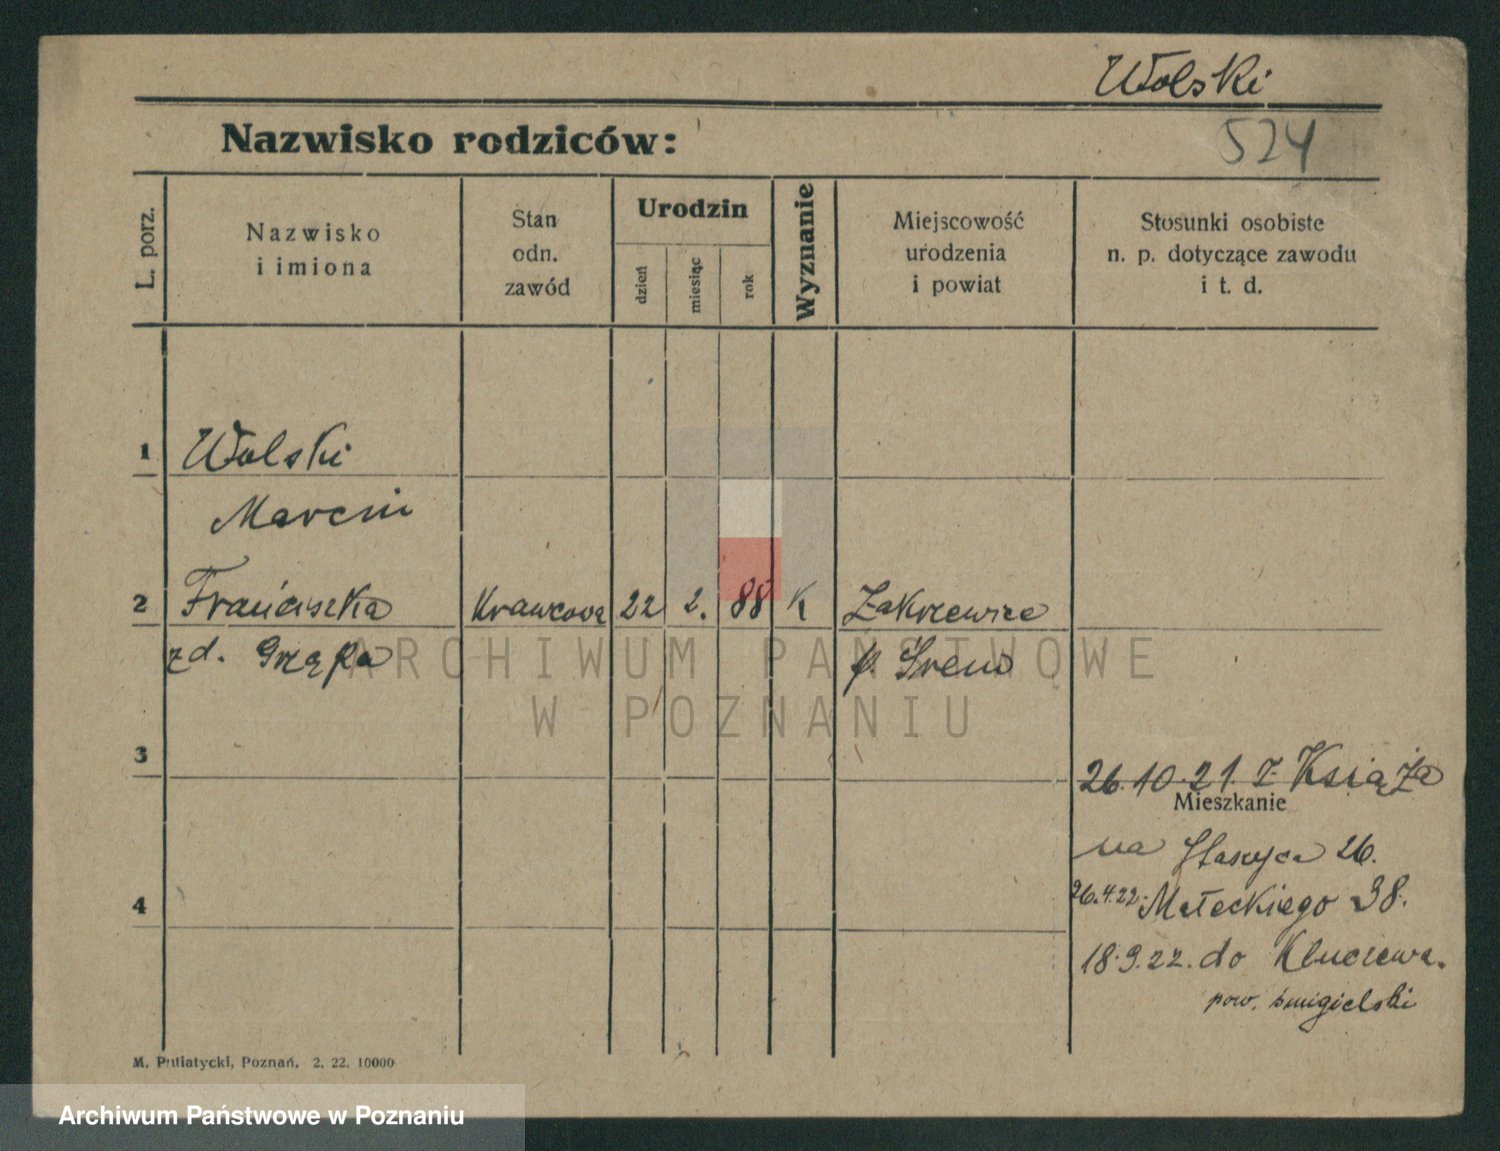 Wolski
524
Nazwisko rodziców:
L. porz.
Nazwisko
i imiona
Stan
odn.
zawód
Urodzin
dzień
miesiąc
rok
Wyznanie
Miejscowość
urodzenia
i powiat
Stosunki osobiste
n. p. dotyczące zawodu
i t. d.
1 Wolski
Marcin
2 Franciszka Krawcowa 22 2. 88 K Zakrzewice
zd. Grzęka p. Śrem
ARCHIWUM PAŃSTWOWE
W POZNANIU
3
26.10.21. z Książa
Mieszkanie
na Staszyca 26.
4
26.4.22. Małeckiego 38.
18.9.22. do Kluczewa.
pow. śmigielski
M. Putiatycki, Poznań. 2. 22. 10000
Archiwum Państwowe w Poznaniu